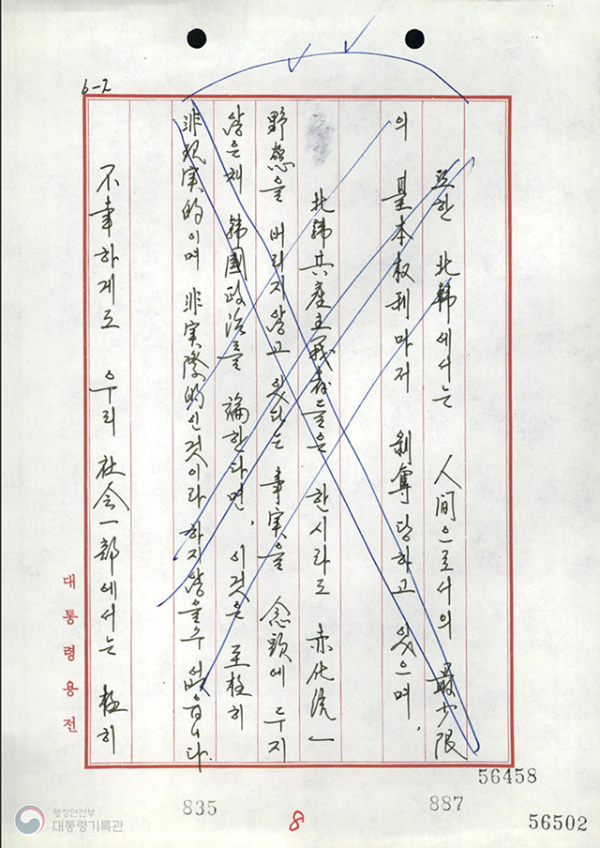 6-2
또한 北韓에서는 人間으로서의 最少限
의 基本权利마저 剝奪당하고 있으며,
北韓共産主義者들은 한시라도 赤化統一
野慾을 버리지 않고 있다는 事実을 念頭에 두지
않은체 韓國政治를 論한다면, 이것은 至极히
非現実的이며 非実際的인것이라 하지않을수 없읍니다.
不幸하게도 우리 社会一部에서는 极히
대통령용전
56458
835
8
887
56502
행정안전부
대통령기록관